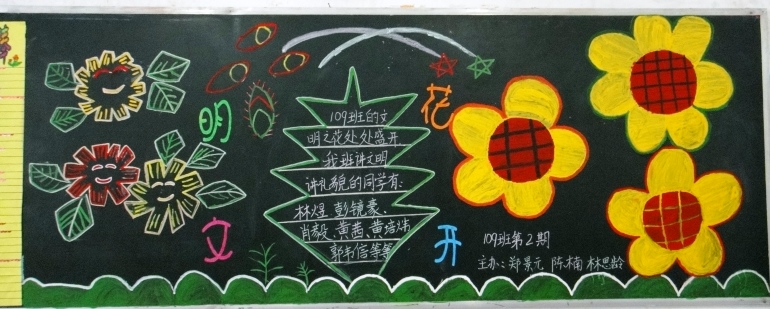 文
明
花
开
109班的文
明之花处处盛开.
我班讲文明
讲礼貌的同学有:
林煜、彭镜豪、
肖毅、黄茜、黄培炜
郭韦信等等
109班第2期
主办:郑景元 陈楠 林思龄